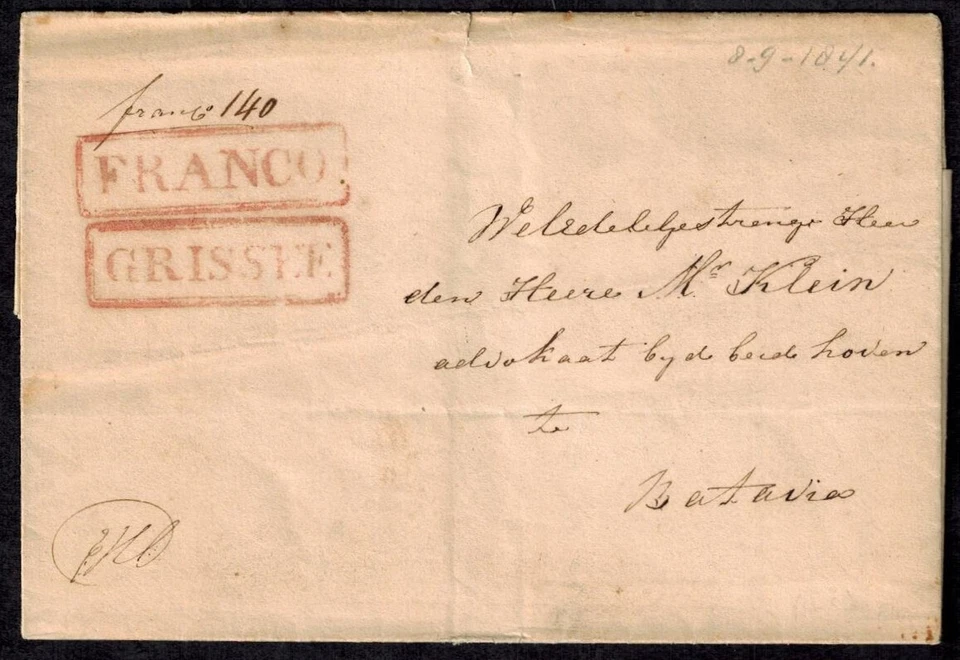 8-9-1841.
franco 140
FRANCO
GRISSEE
WelEdelGestrenge Heer
den Heere Mr Klein
advokaat by de beide hoven
te
Batavia